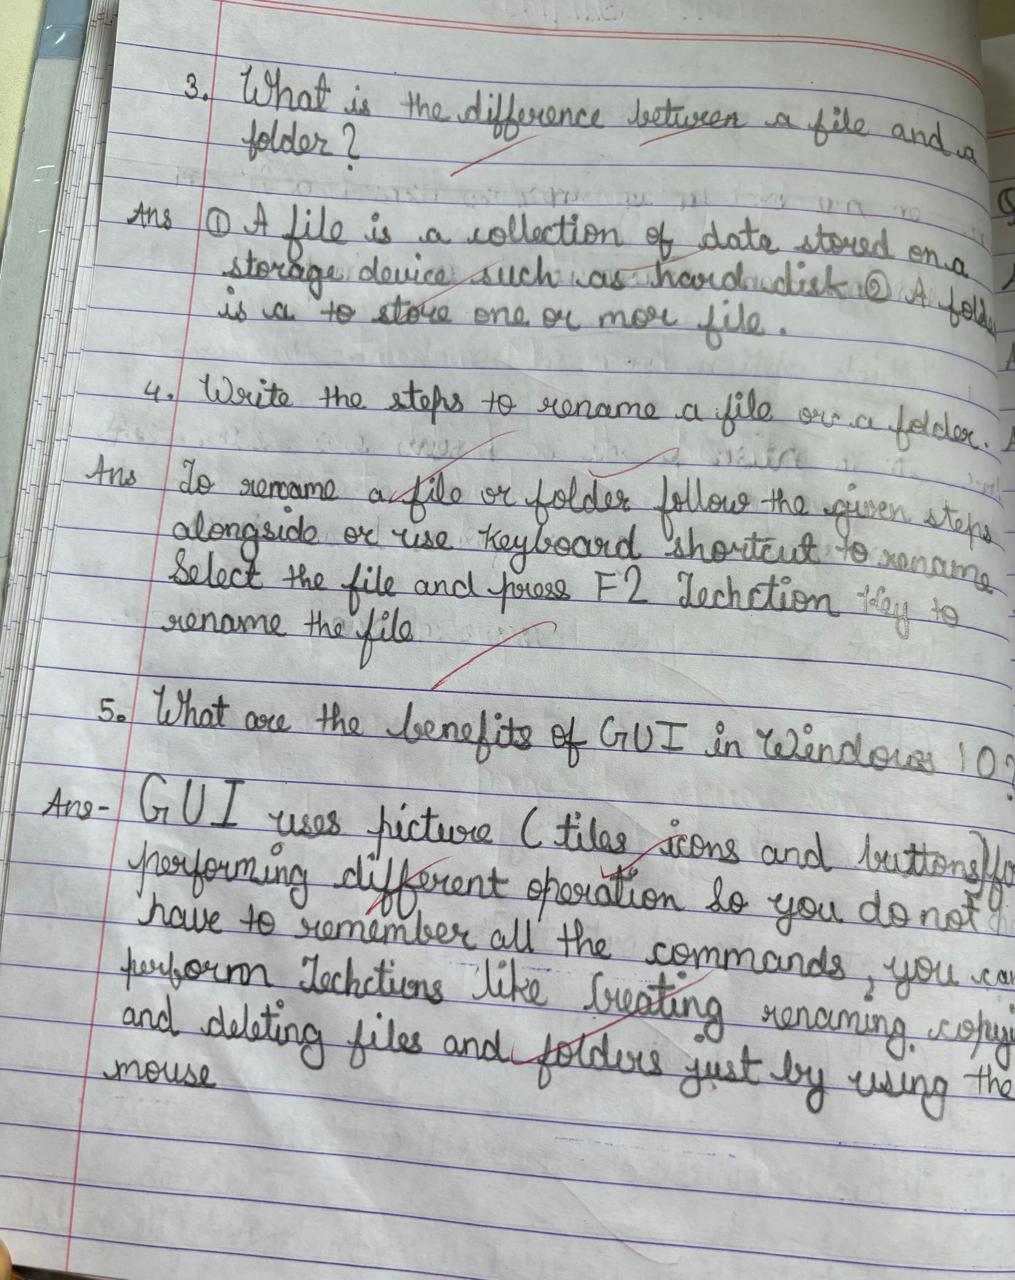 3. What is the difference between a file and a
folder?
Ans ① A file is a collection of data stored on a
storage device such as hard disk ② A folde
is a to store one or mor file.
4. Write the steps to rename a file or a folder.
Ans To rename a file or folder follow the given steps
alongside or use keyboard shortcut to rename
Select the file and press F2 Techction Key to
rename the file
5. What are the benefits of GUI in Windows 10?
Ans- GUI uses picture (tiles icons and buttons) fo
performing different operation So you do not
have to remember all the commands, you can
perform Techctiens like Creating renaming, copyi
and deleting files and folders just by using the
mouse